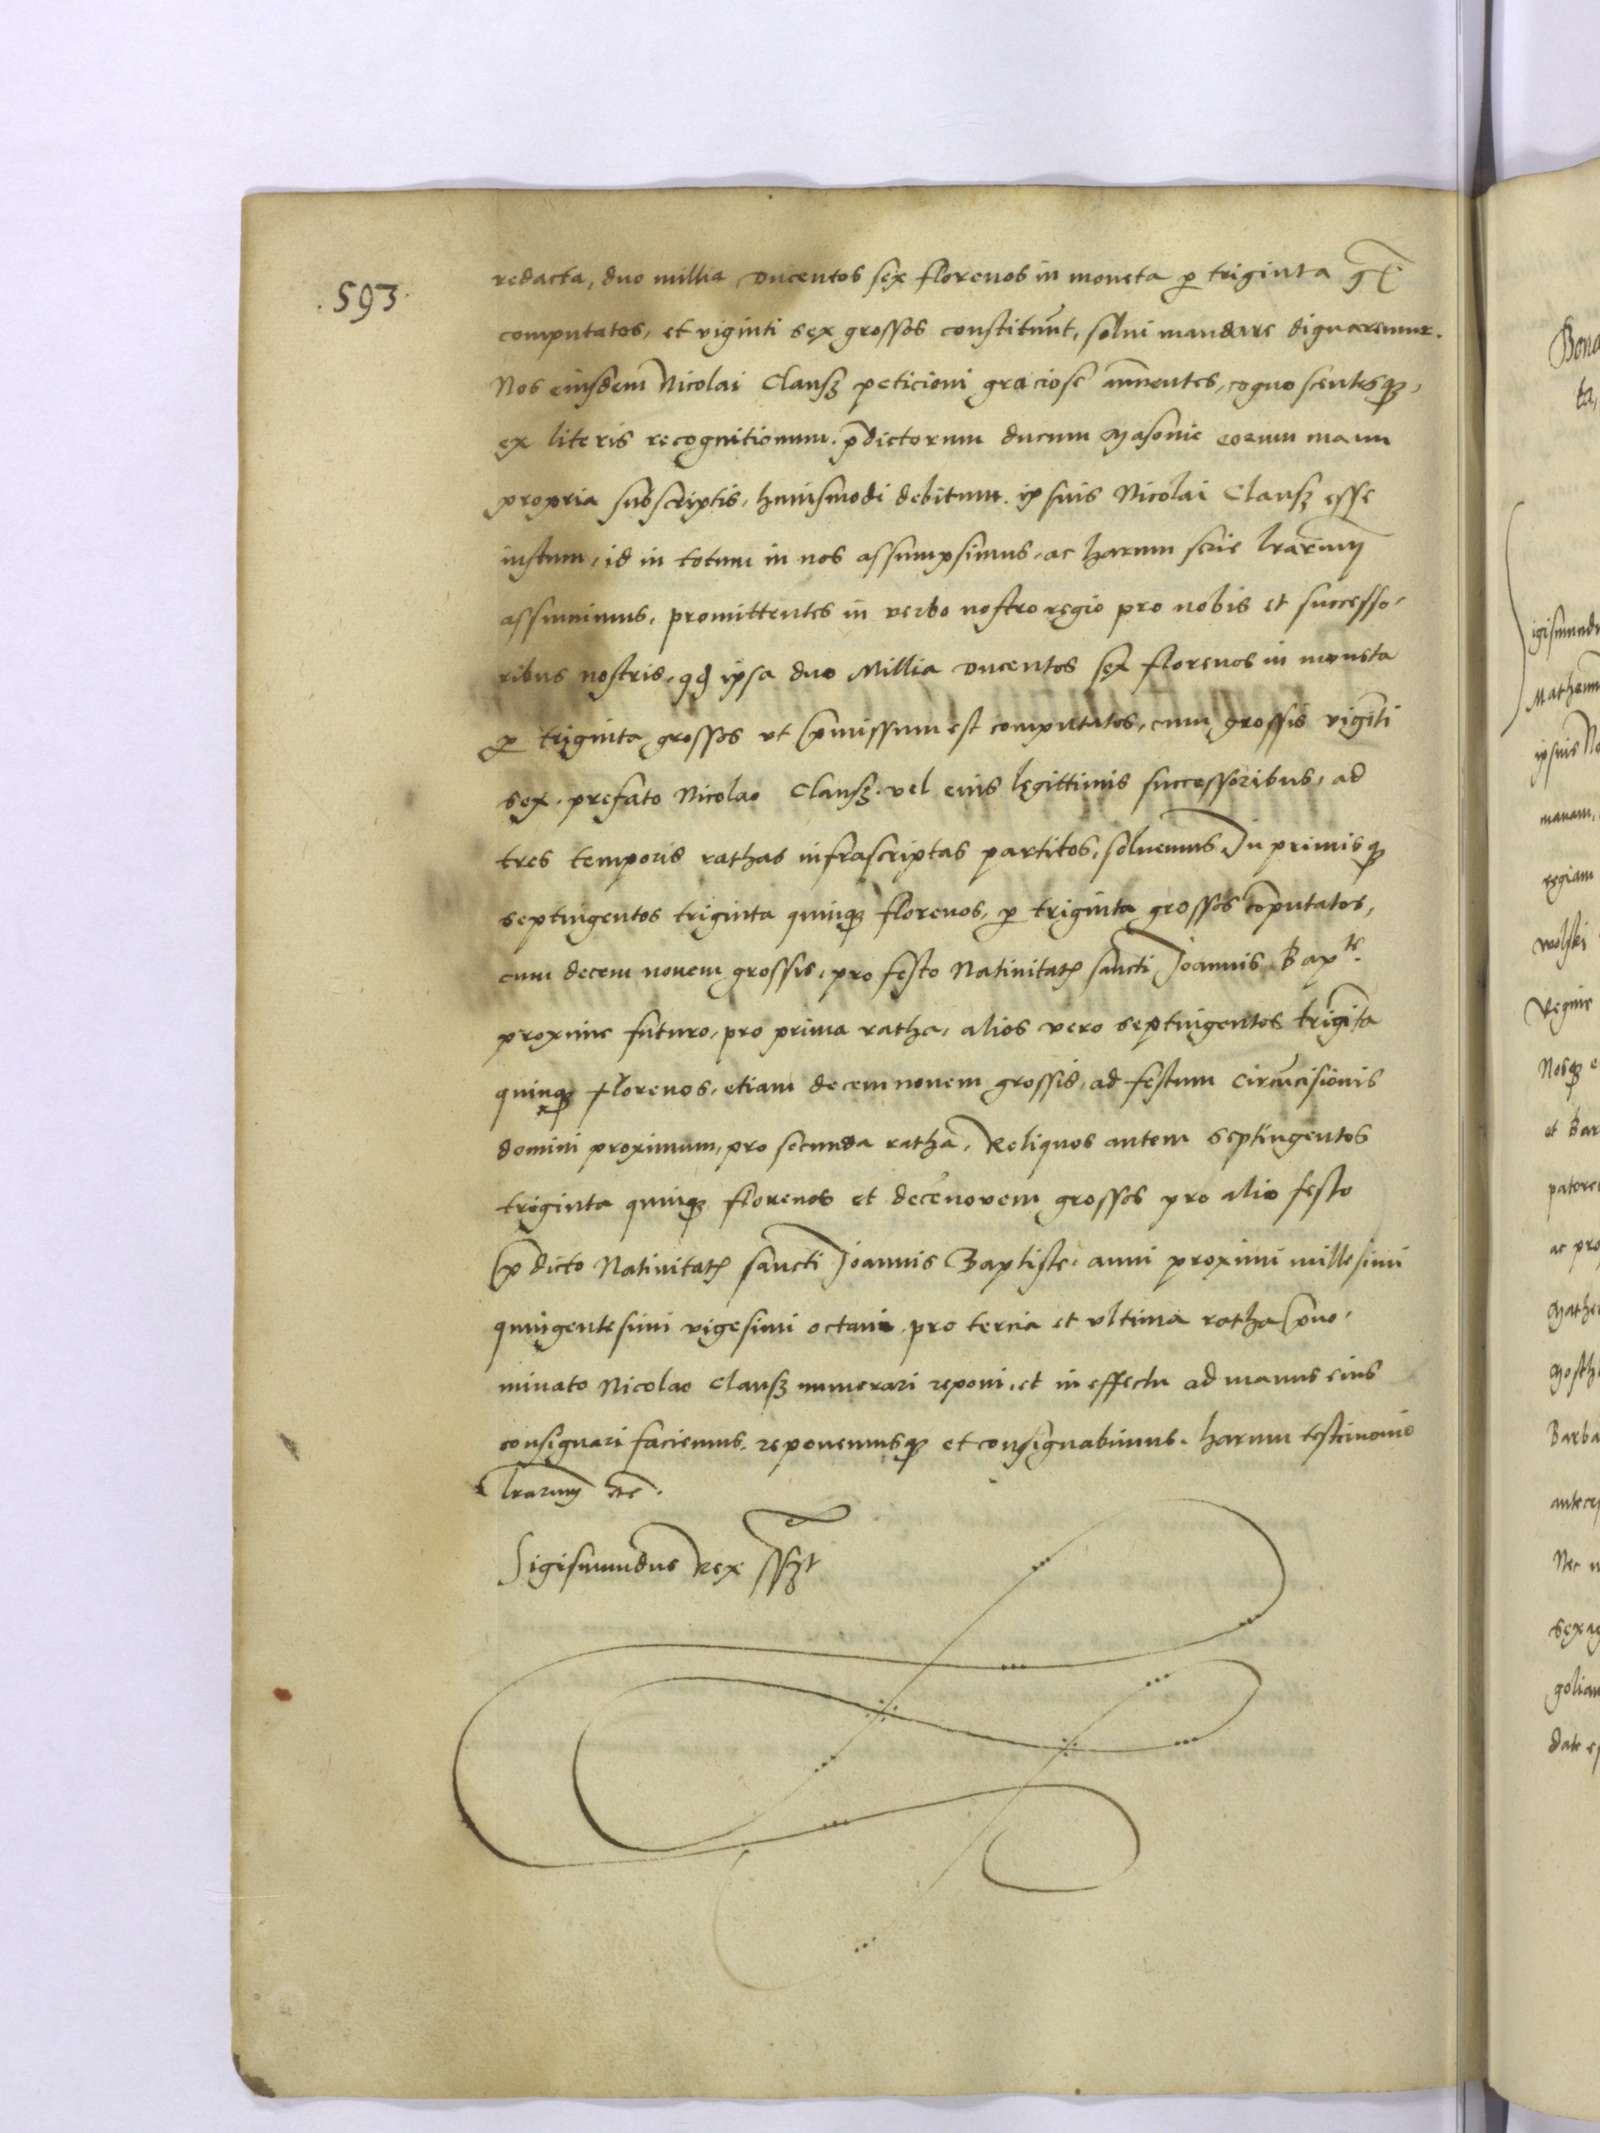 .593.
redacta, duo millia ducentos sex florenos in moneta p triginta gr
computatos, et viginti sex grossos constituūt, solui mandare dignaremur.
Nos eiusdem Nicolai Clausz peticioni graciose annuentes, cognoscentesq₃,
ex literis recognitionum p̄dictorum ducum Masouie eorum manu
propria subscriptis, huiusmodi debitum ipsius Nicolai Clausz esse
iustum, id in totum in nos assumpsimus, ac harum serie lrarum
assumimus, promittentes in verbo nostro regio pro nobis et successo,
ribus nostris, qd ipsa duo Millia ducentos sex florenos in moneta
p triginta grossos vt p̄missum est computatos, cum grossis vigīti
sex, prefato Nicolao Clausz vel eius legittimis successoribus, ad
tres temporis rathas infrascriptas partitos, soluemus, In primisq₃
septingentos triginta quinq₃ florenos, p triginta grossos cōputatos,
cum decem nouem grossis, pro festo Natiuitatꝭ sancti Joannis Bapte.
proxime futuro, pro prima ratha, alios vero septuigentos trigīta
quinq₃ florenos, etiam decem nouem grossis, ad festum Circūcisionis
domini proximum, pro secunda ratha, Reliquos autem septingentos
triginta quinq₃ florenos et decēnovem grossos pro alio festo
p̄dicto Natiuitatꝭ sancti Joannis Baptiste, anni proximi millesimi
quingentesimi vigesimi octaui, pro tercia et vltima ratha p̄no,
minato Nicolao Clausz numerari reponi, et in effectu ad manus eius
consignari faciemus, reponemusq₃ et consignabimus, harum testimonio
lrarum etc.
Sigismundus Rex sszt
Bona
ta,
igismundu
Mathem
ipsius No
manam,
regiam
wolski
Regine
Nosq₃ e
et Bar
patore
ac pro
Mathe
Mosth
Barba
antece
Nec n
sexag
golian
date e